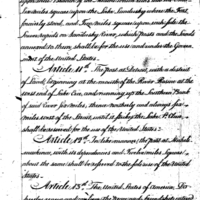 miles square upon the Lake Sandusky where the Fort
formerly stood, and two miles square upon each side the
Lower rapids on Sandusky River, which posts and the Lands
annexed to them, shall be for the use and under the Govern
ment of the United States.
Article 11th. The post at Detroit, with a district
of Land, beginning at the mouth of the River Rosine at the west
end of Lake Erie, and running up the Southern Bank
of said River six miles, thence northerly and always six
miles west of the Strait, until it strikes the Lake St. Clair,
shall be reserved for the use of the United States.
Article 12th. In like manner the post at Michili
mackinac, with its dependencies and twelve miles square
about the same shall be reserved to the sole use of the United
States.
Article 13th. The United States of America